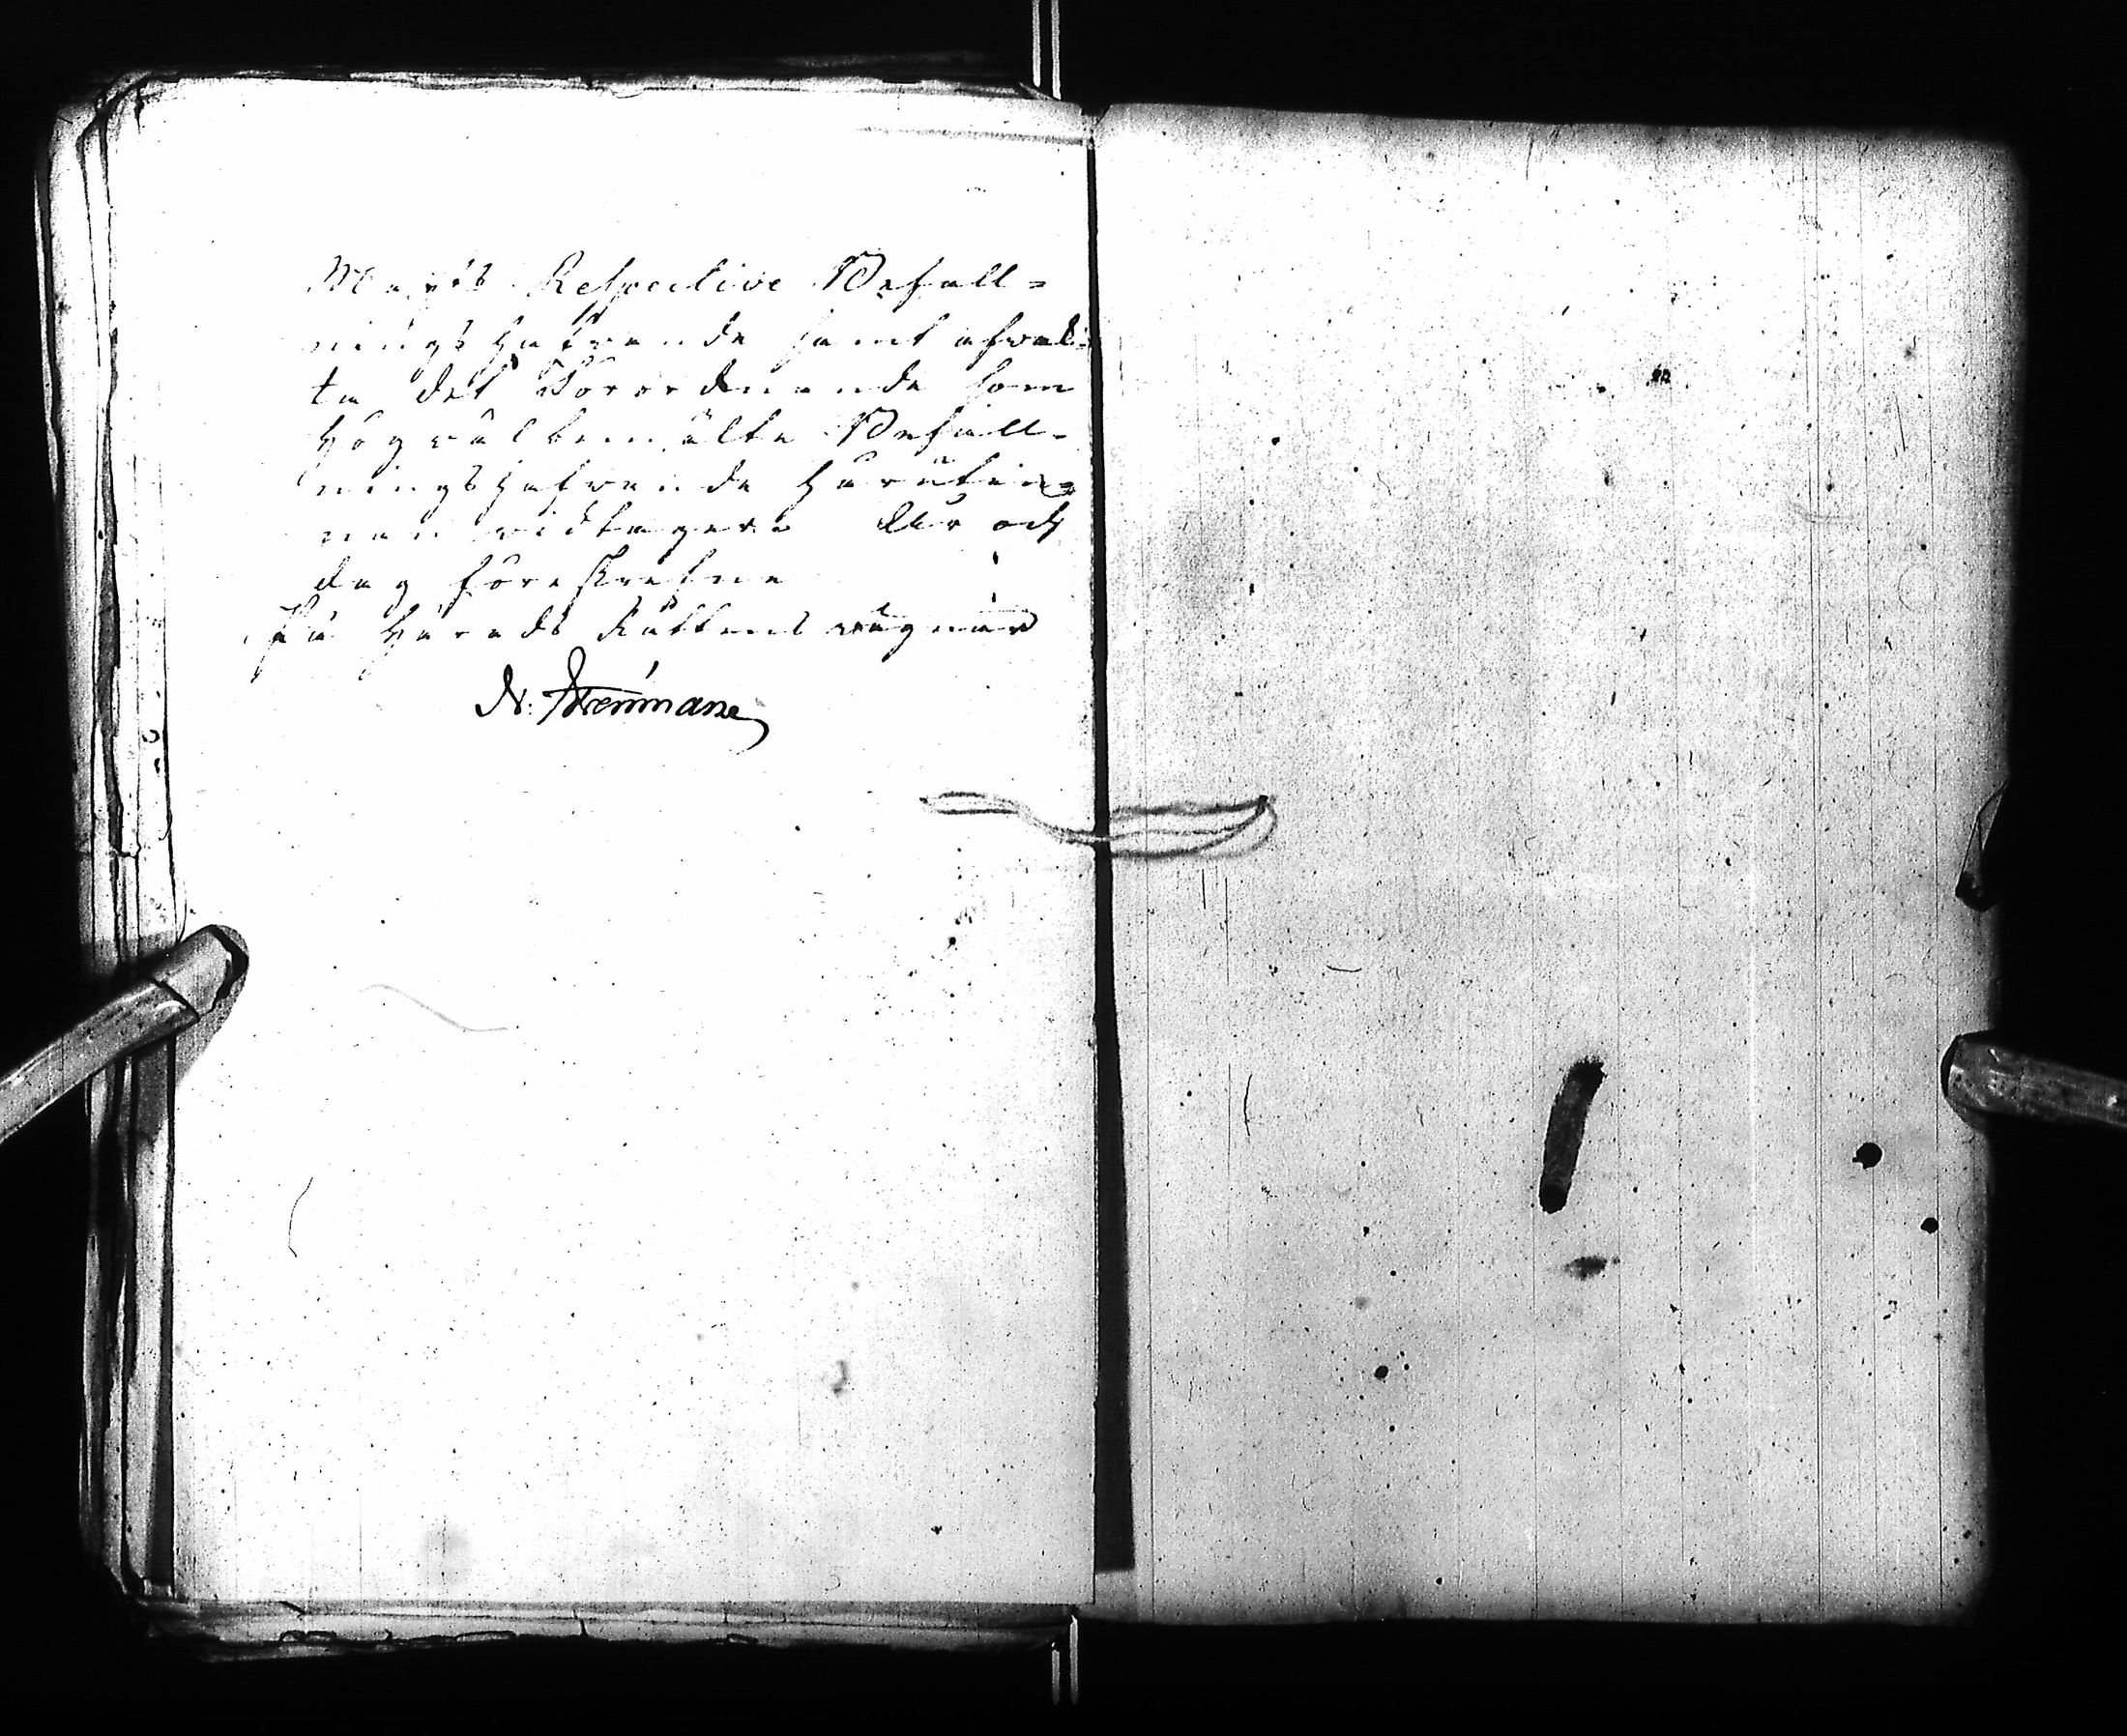 Maj:ts Respective Befall=
ningshafvande samt afvak=
ta det Förordnande som
Högvälbemälte Befall=
ningshafvande härutin=
nan vidtager. År och
dag föreskrefne
På Härads Rättens vägnar
N. Brenmane